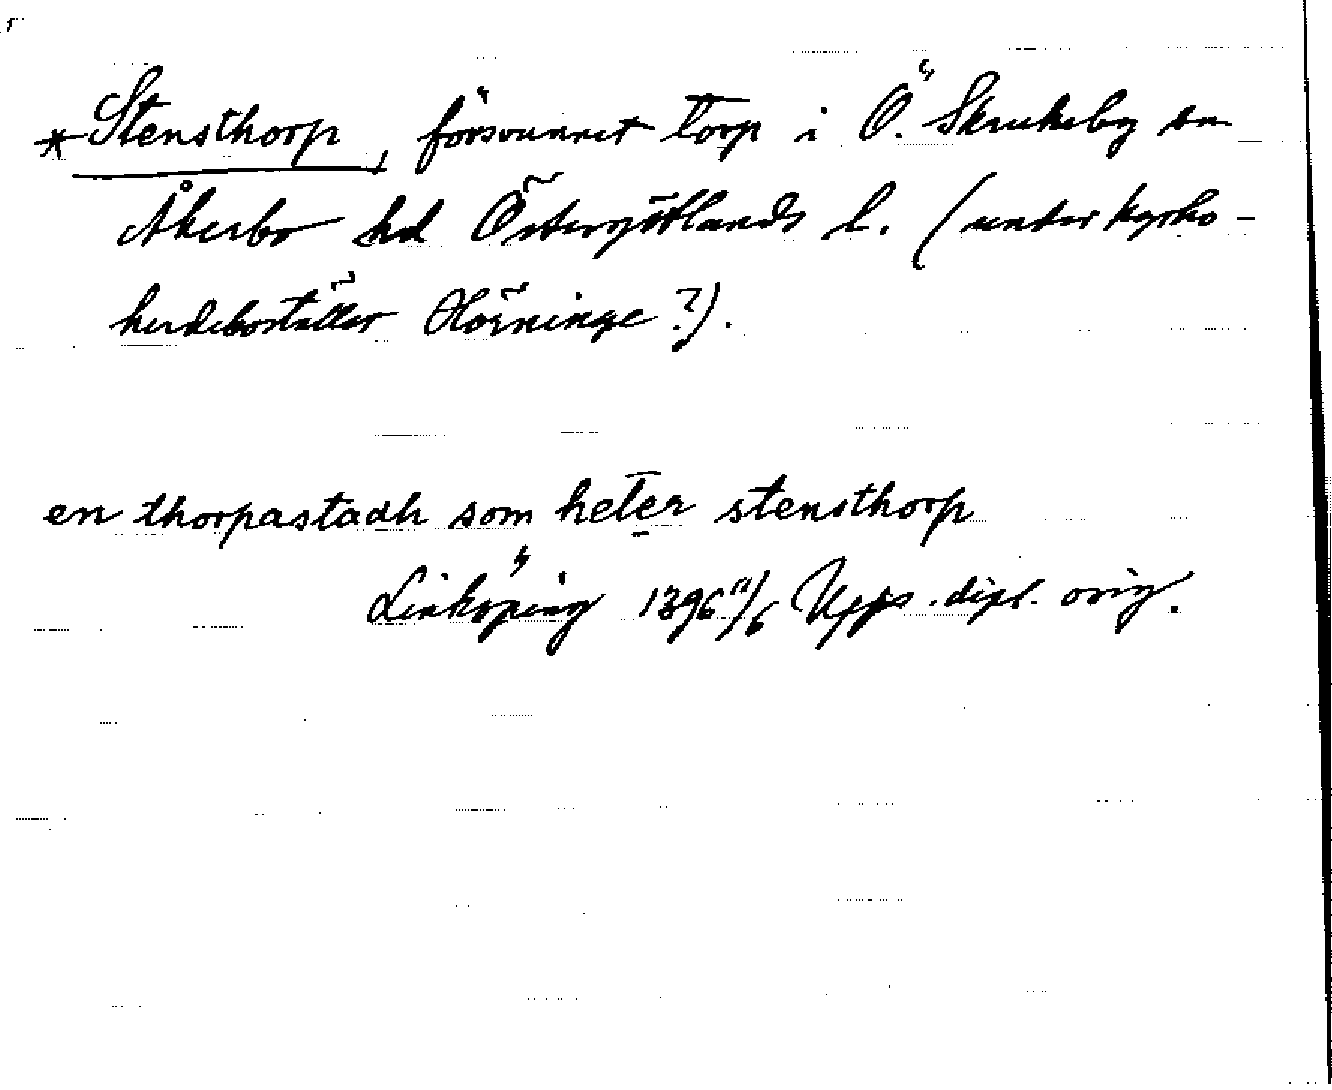 *Stensthorp, försvunnet torp i Ö. Skrukeby sn
Åkerbo hd Östergötlands l. (under kyrko-
herdebostället Hörninge ?).
en thorpastadh som heter stensthorp
Linköping 1396 11/6 Upps. dipl. orig.